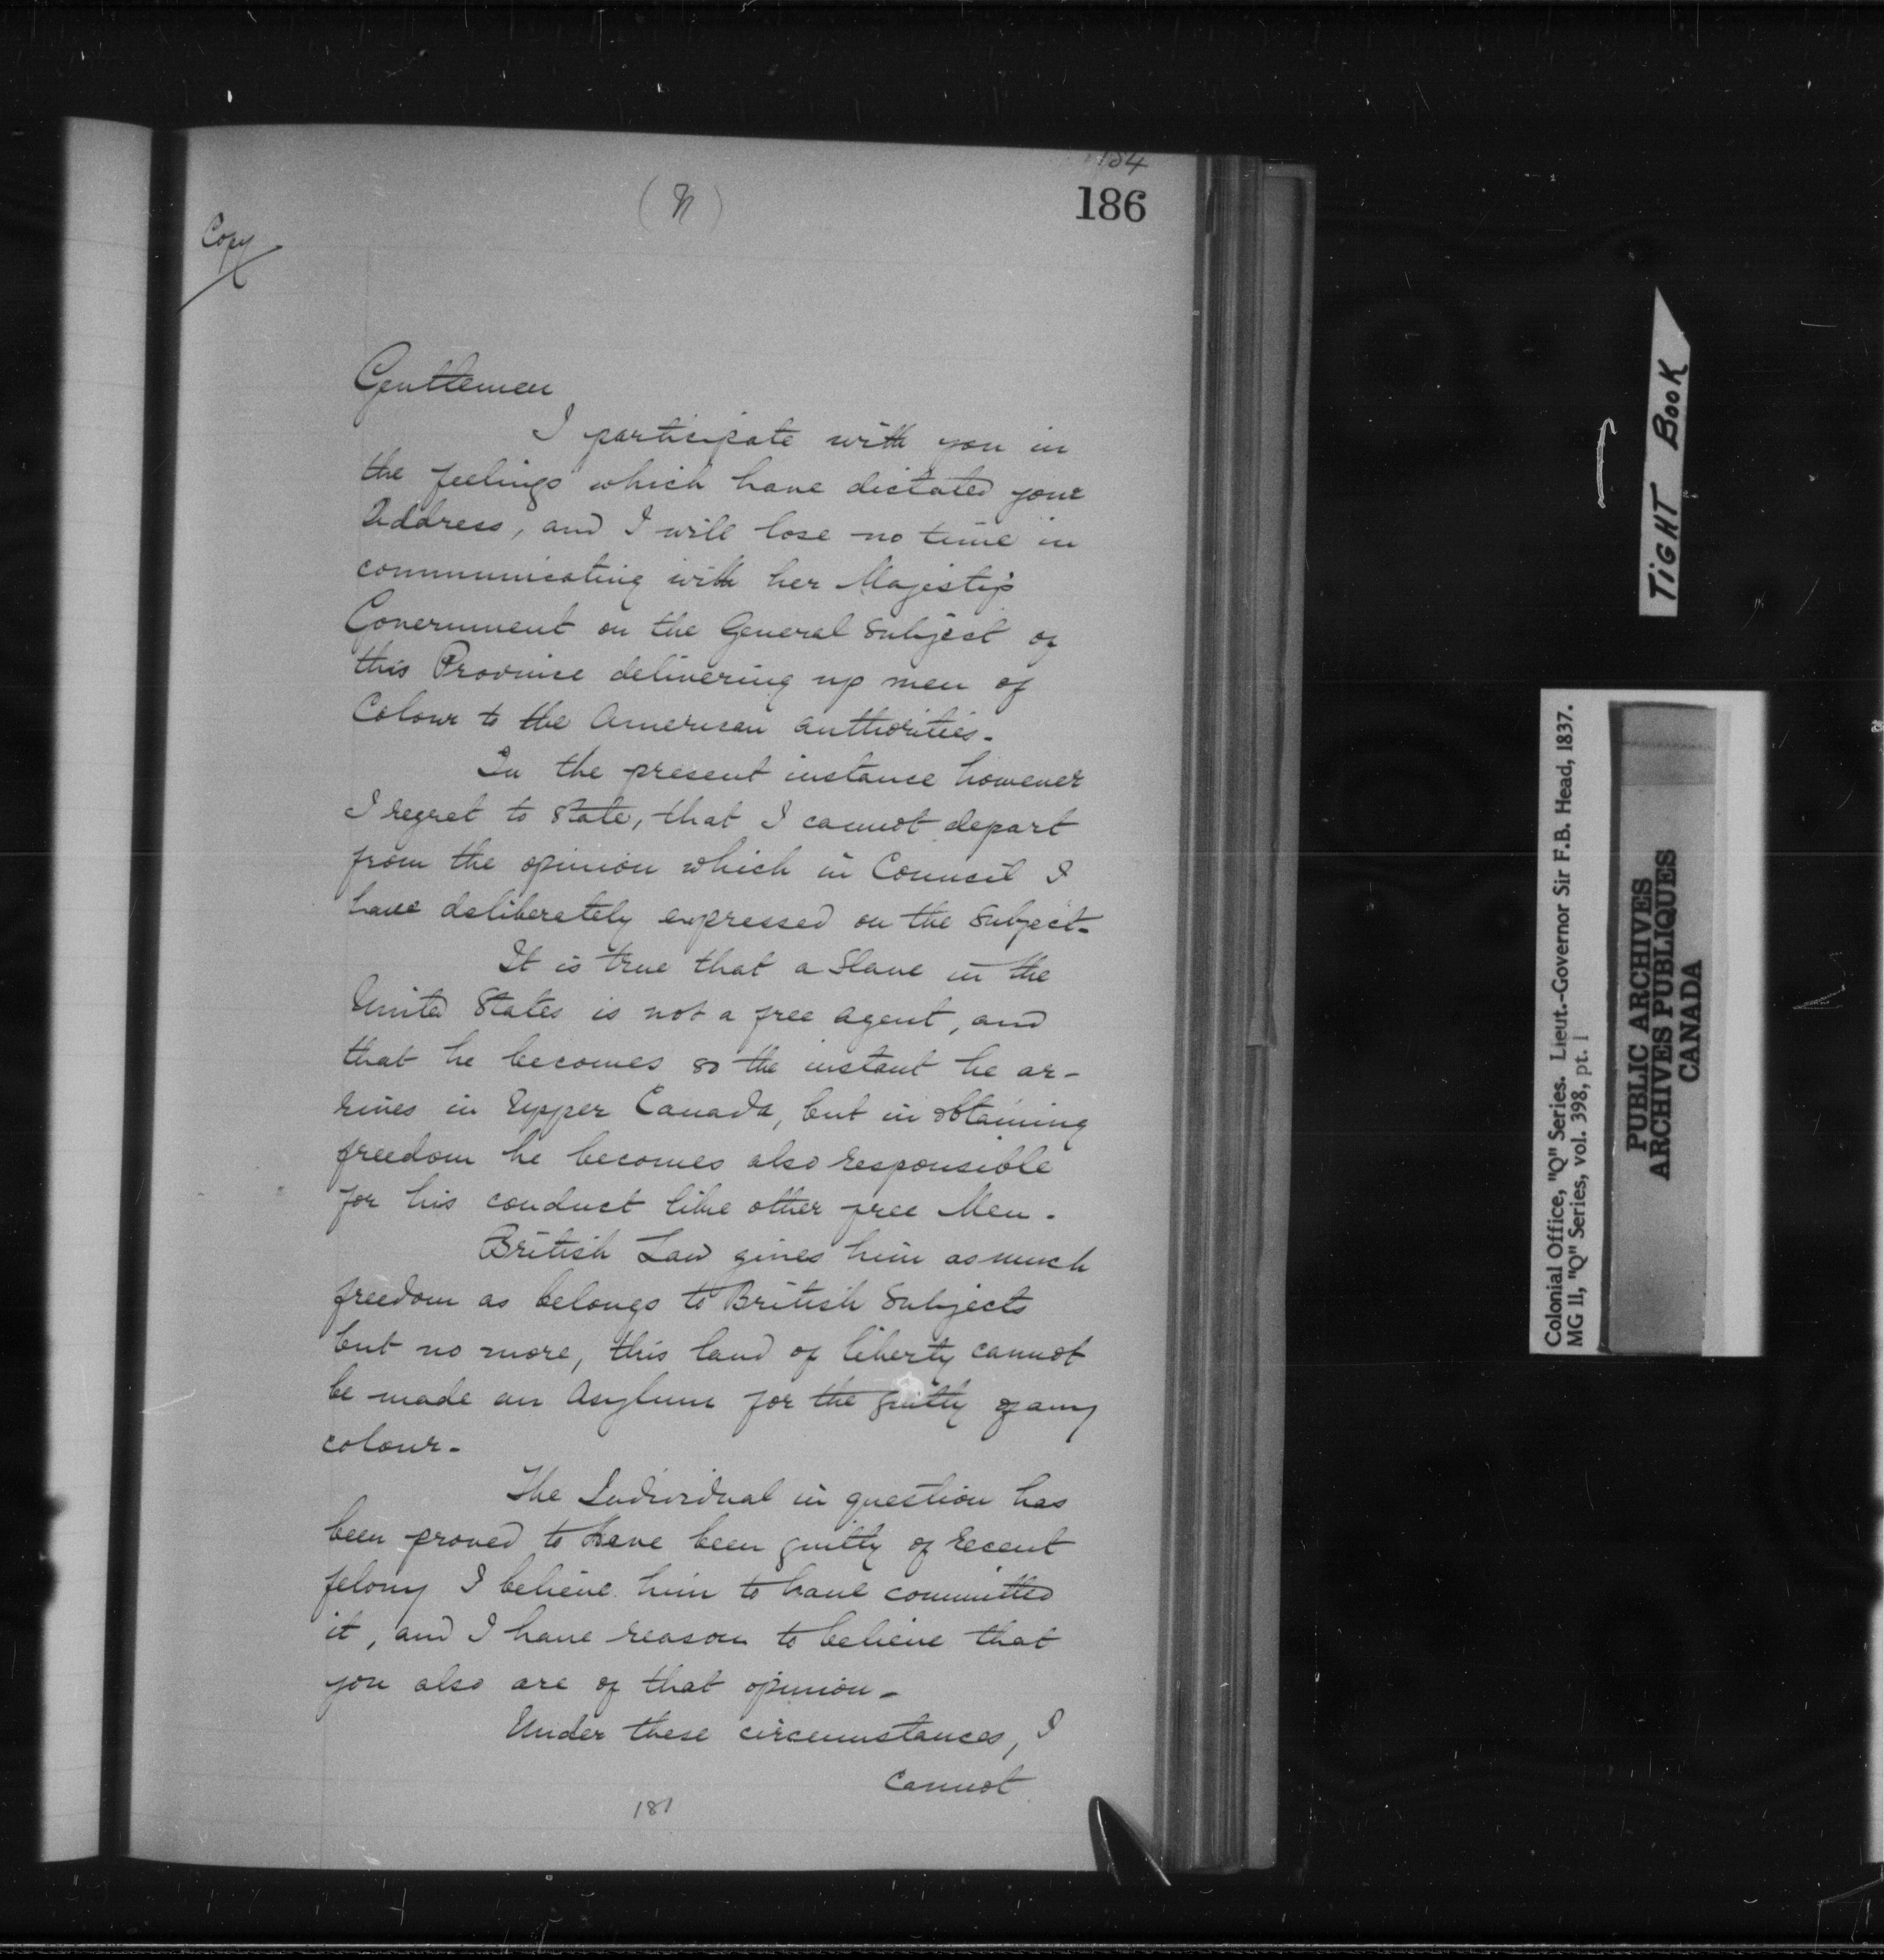 184
186
(N)
Copy
Gentlemen
I participate with you in
the feelings which have dictated your
Address, and I will lose no time in
communicating with her Majesty's
Government on the General Subject of
this Province delivering up men of
Colour to the American Authorities.
In the present instance however
I regret to State, that I cannot depart
from the opinion which in Council I
have deliberately expressed on the Subject.
It is true that a Slave in the
United States is not a free agent, and
that he becomes so the instant he ar-
rives in Upper Canada, but in obtaining
freedom he becomes also responsible
for his conduct like other free Men.
British Law gives him as much
freedom as belongs to British Subjects
but no more, this land of liberty cannot
be made an Asylum for the guilty of any
colour.
The Individual in question has
been proved to have been guilty of recent
felony I believe him to have committed
it, and I have reason to believe that
you also are of that opinion.
Under these circumstances, I
Cannot
181
TIGHT BOOK
Colonial Office, "Q" Series. Lieut.-Governor Sir F.B. Head, 1837.
MG 11, "Q" Series, vol. 398, pt. 1
PUBLIC ARCHIVES
ARCHIVES PUBLIQUES
CANADA